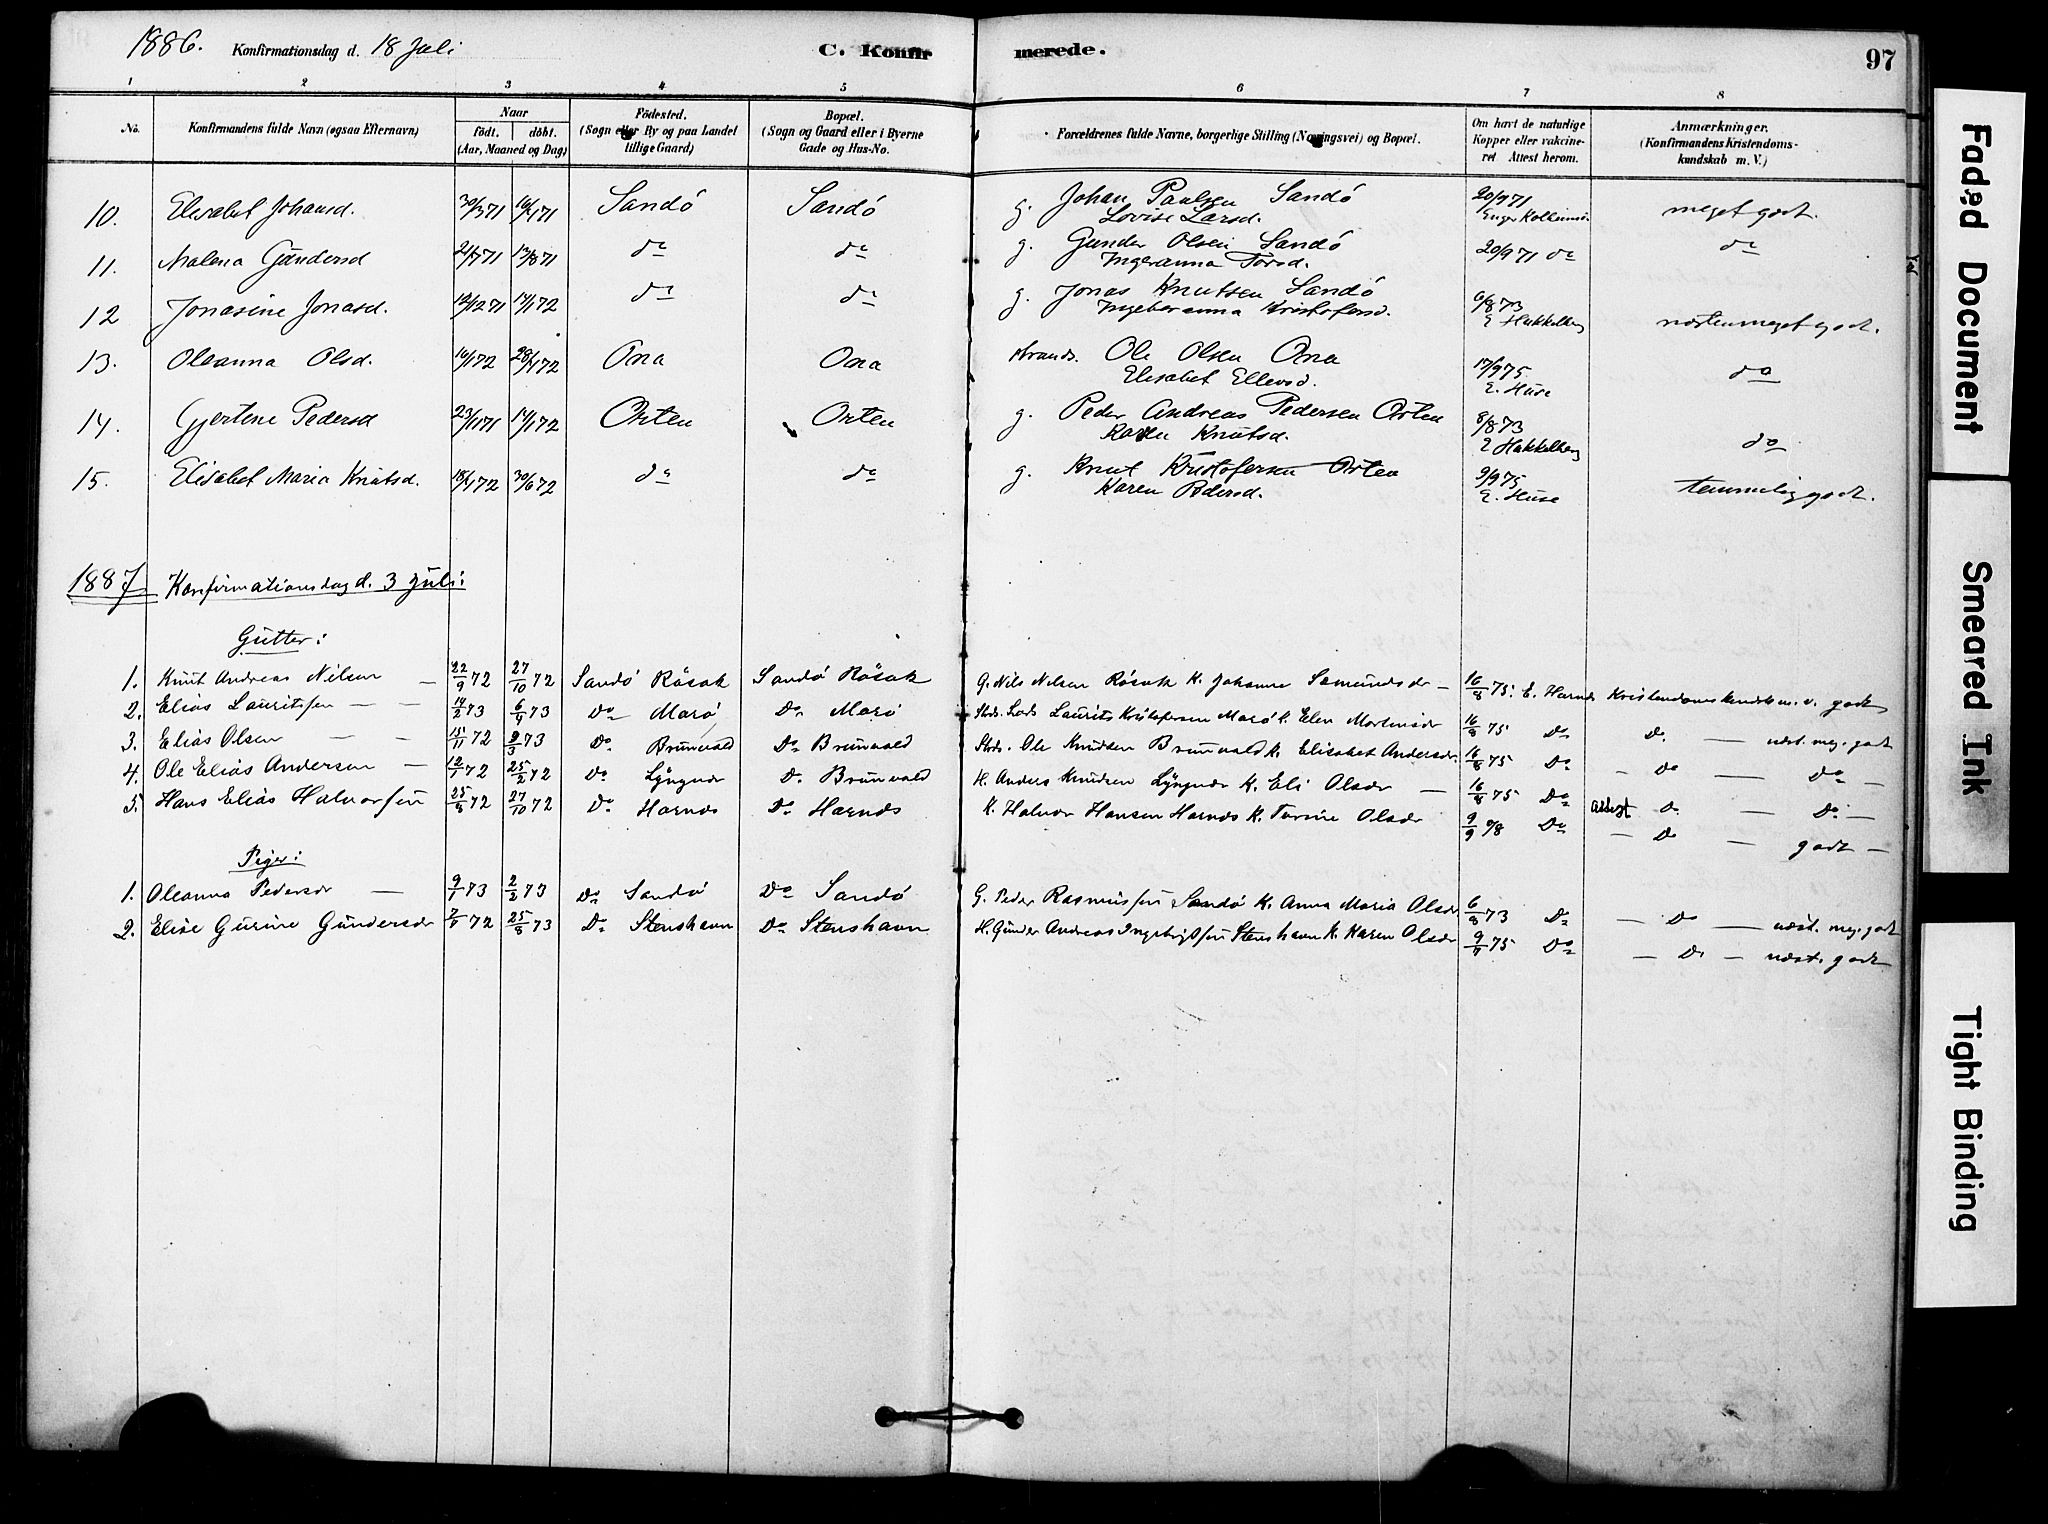 1886. Konfirmationsdag d. 18 Juli C. Konfirmerede. 97
1 2 3 4 5 6 7 8
No. Konfirmandens fulde Navn (ogsaa Efternavn) Naar födt. döbt. (Aar, Maaned og Dag) Födested. (Sogn eller By og paa Landet tillige Gaard) Bopæl. (Sogn og Gaard eller i Byerne Gade og Hus-No. Forældrenes fulde Navne, borgerlige Stilling (Næringsvei) og Bopæl. Om havt de naturlige Kopper eller vakcineret. Attest herom. Anmærkninger. (Konfirmandens Kristendomskundskab m. V.)
10. Elisabet Johansd. 30/3 71 16/4 71 Sandö Sandö g. Johan Paulsen Sandö 20/9 71 meget godt.
Lovise Larsd.
11. Malena Gundersd 21/7 71 13/8 71 do do g. Gunder Olsen Sandö 20/9 71 do do
Ingeranna Torsd.
12 Jonasine Jonasd. 12/12 71 17/1 72 do do g. Jonas Knutsen Sandö 6/8 73 næsten meget godt.
Ingeberanna Kristofersd. E Hukkelberg
13. Oleanna Olsd. 16/1 72 28/4 72 Ona Ona strands. Ole Olsen Ona 17/9 75. do
Elisabet Ellevsd. E. Huse
14. Gjertine Pedersd 23/11 71 17/1 72 Orten Orten g. Peder Andreas Pedersen Orten 8/8 73 do
Karen Knutsd. E Hukkelberg
15. Elisabet Maria Knutsd. 18/4 72 30/6 72 do do g. Knut Kristofersen Orten 9/9 75 temmelig godt.
Karen Pedersd. E. Huse
1887 Konfirmationsdag d. 3 Juli:
Gutter:
1. Knut Andreas Nilsen 22/9 72 27/10 72 Sandö Rösok Sandö Rösok G. Nils Nilsen Rösok K. Johanne Samundsdr 16/8 75. E. Harnes Kristendomskundsk m. v. godt
2. Elias Lauritssen 14/2 73 6/4 73 Do Marö Do Marö Lars Laurits Kristofersen Marö k. Elen Mortensdr 16/8 75 Do Do næst. meg. godt
3. Elias Olsen 15/11 72 9/3 73 Do Brunvald Do Brunvald Ole Knudsen Brunvald k. Elisabet Andersdr. 16/8 75 Do Do Do
4. Ole Elias Andersen 12/1 72 25/2 72 Do Lyngnes Do Brunvald H. Anders Knudsen Lyngnes K. Eli Olsdr 16/8 75 Do Do Do
5. Hans Elias Halvorsen 25/8 72 27/10 72 Do Harnes Do Harnes K. Halvor Hansen Harnes K. Turine Olsdr 9/9 78 Do Do godt
Piger:
1. Oleanna Pedersdr 9/1 73 2/2 73 Do Sandö Do Sandö G. Peder Rasmussen Sandö K. Anna Maria Olsdr 6/8 73 Do Do næst. meg. godt
2. Elise Gurine Gundersdr 72 25/8 73 Do Stenshavn Do Stenshavn H. Gunder Andreas Ingebrigtsen Stenshavn K. Karen Olsdr 75 Do Do næst. godt
Faded Document
Smeared Ink
Tight Binding